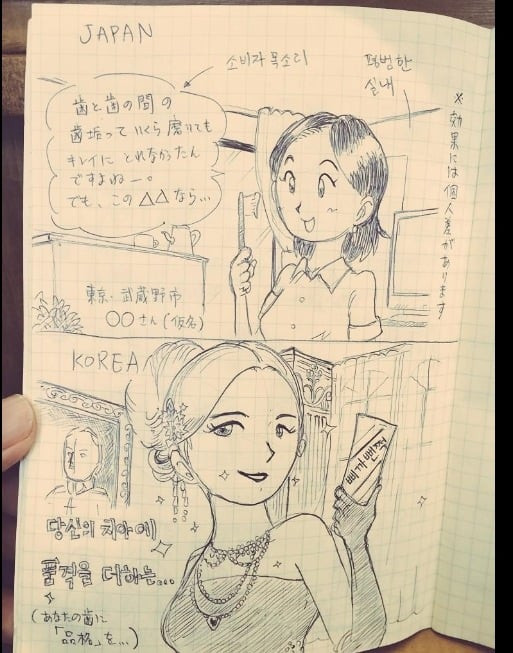 JAPAN
소비자 목소리
평범한
실내
歯と歯の間の
歯垢っていくら磨いても
キレイにとれなかったん
ですよねー。
でも、この△△なら…
※効果には個人差があります
東京・武蔵野市
〇〇さん(仮名)
KOREA
삐까뻔쩍
당신의 치아에
품격을 더하는...
(あなたの歯に
「品格」を…)